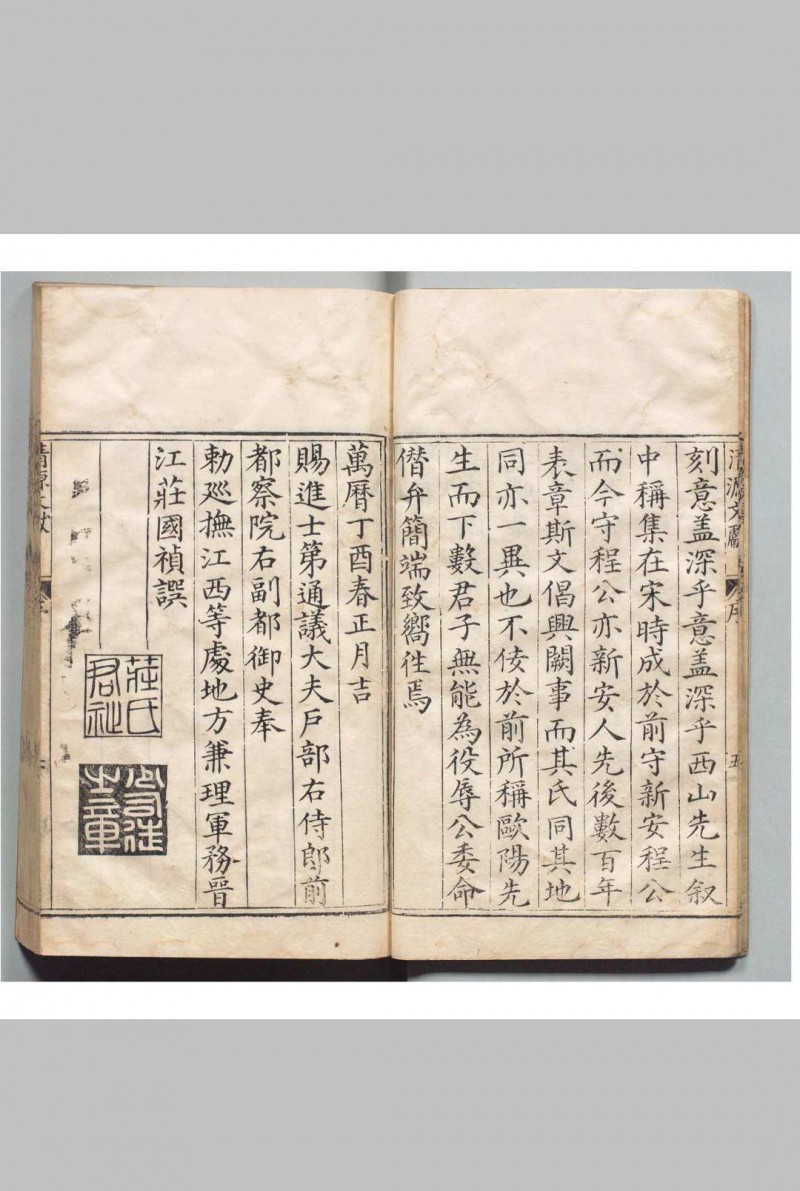 清源文獻
序
五
刻意盖深乎意盖深乎西山先生叙
中稱集在宋時成於前守新安程公
而今守程公亦新安人先後數百年
表章斯文倡興闕事而其氏同其地
同亦一異也不佞於前所稱歐陽先
生而下數君子無能為役辱公委命
僭弁簡端致嚮徃焉
萬曆丁酉春正月吉
賜進士第通議大夫戶部右侍郎前
都察院右副都御史奉
勅廵撫江西等處地方兼理軍務晉
江莊國禎譔
莊氏
君祉
清源文獻